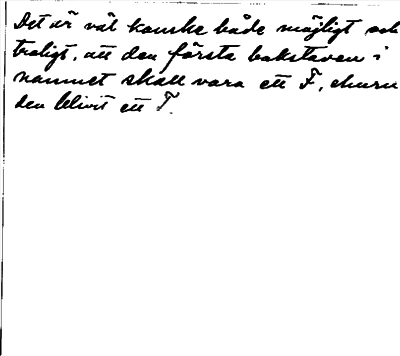 Det är väl kanske både möjligt och
troligt, att den första bokstaven i
namnet skall vara ett F, ehuru
den blivit ett T.